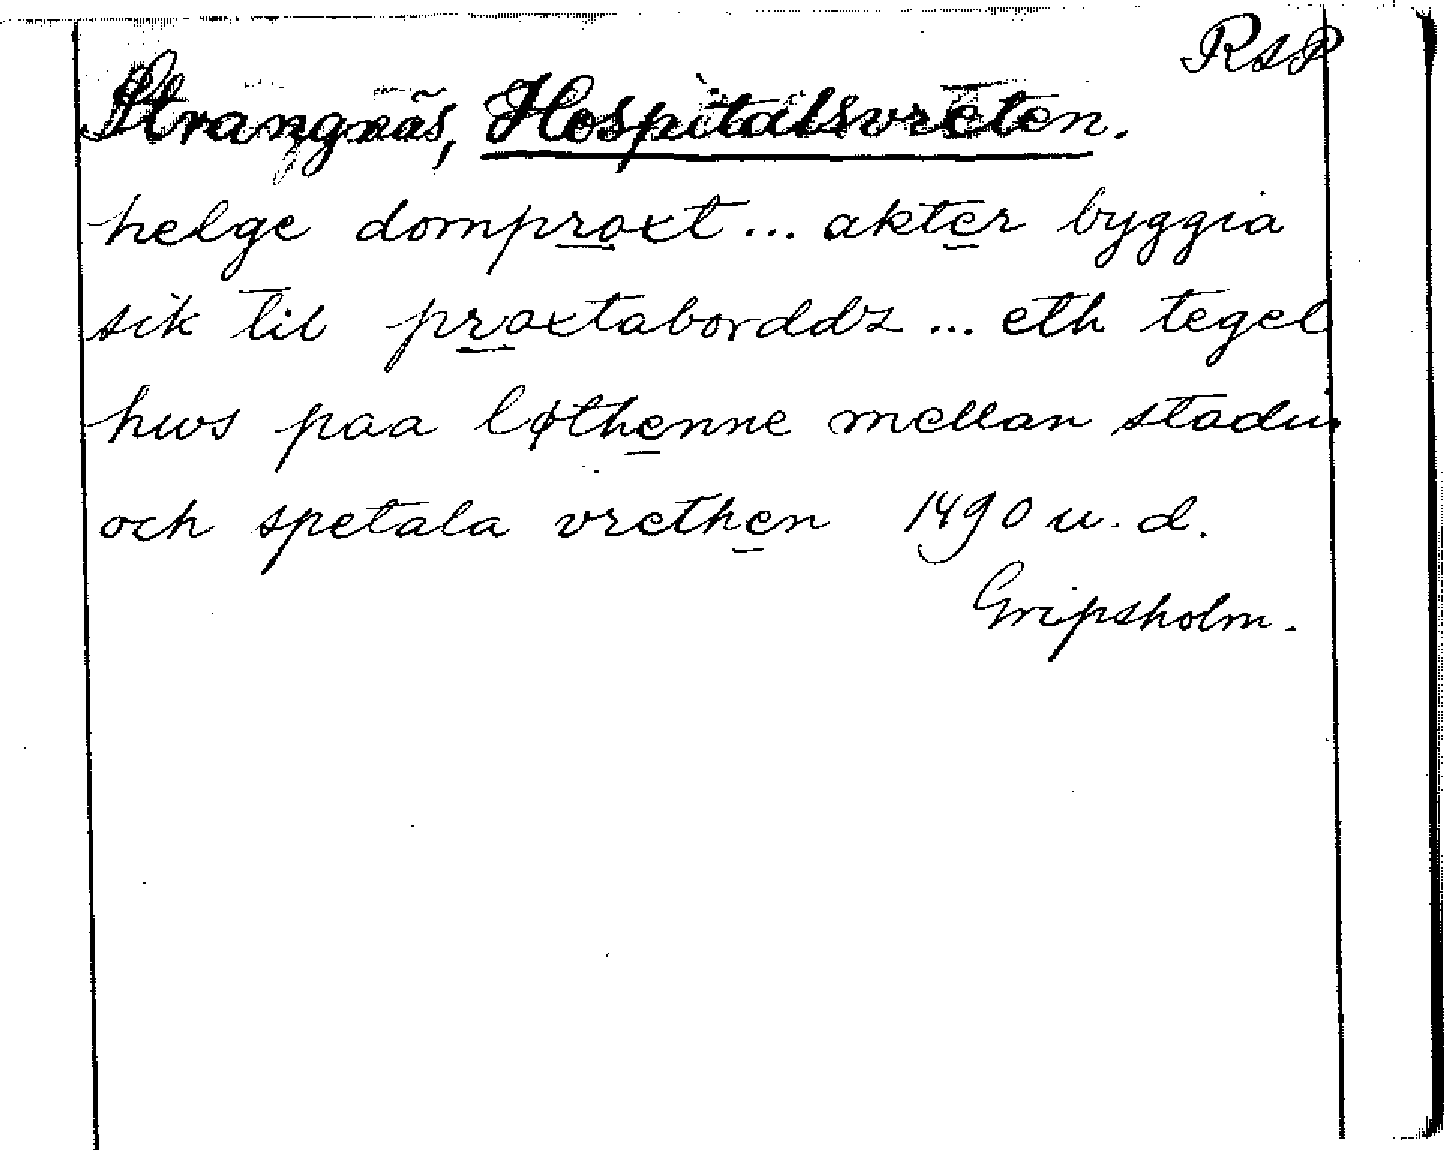 RAP
Strängnäs, Hospitalsvreten.
helge domproxt ... akter byggia
sik til proxtaborddz ... eth tegel
hws paa løthenne mellan
och spetala vrethen 1490 u. d.
Gripsholm.